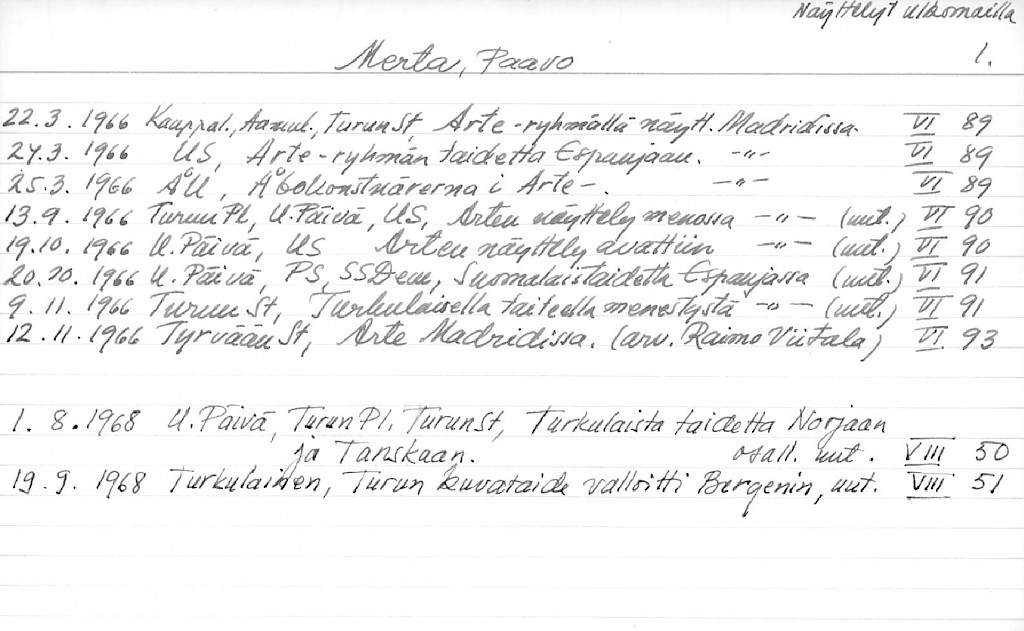 Näyttelyt ulkomailla
Merta, Paavo 1.
22.3. 1966 Kauppal., Aamul., Turun St, Arte-ryhmällä näytt. Madridissa. VI 89
24.3. 1966 US, Arte-ryhmän taidetta Espanjaan. -"- VI 89
25.3. 1966 ÅU, Åbokonstnärerna i Arte-. -"- VI 89
13.9. 1966 Turun Pl, U.Päivä, US, Arten näyttely menossa -"- (uut.) VI 90
19.10. 1966 U.Päivä, US Arten näyttely avattiin -"- (uut.) VI 90
20.10. 1966 U.Päivä, PS, SSDem, Suomalaistaidetta Espanjassa (uut.) VI 91
9.11. 1966 Turun St, Turkulaisella taiteella menestystä -"- (uut.) VI 91
12.11. 1966 Tyrvään St, Arte Madridissa. (arv. Raimo Viitala) VI 93
1. 8. 1968 U.Päivä, Turun Pl. Turun St, Turkulaista taidetta Norjaan
ja Tanskaan. osall. uut. VIII 50
19.9. 1968 Turkulainen, Turun kuvataide valloitti Bergenin, uut. VIII 51